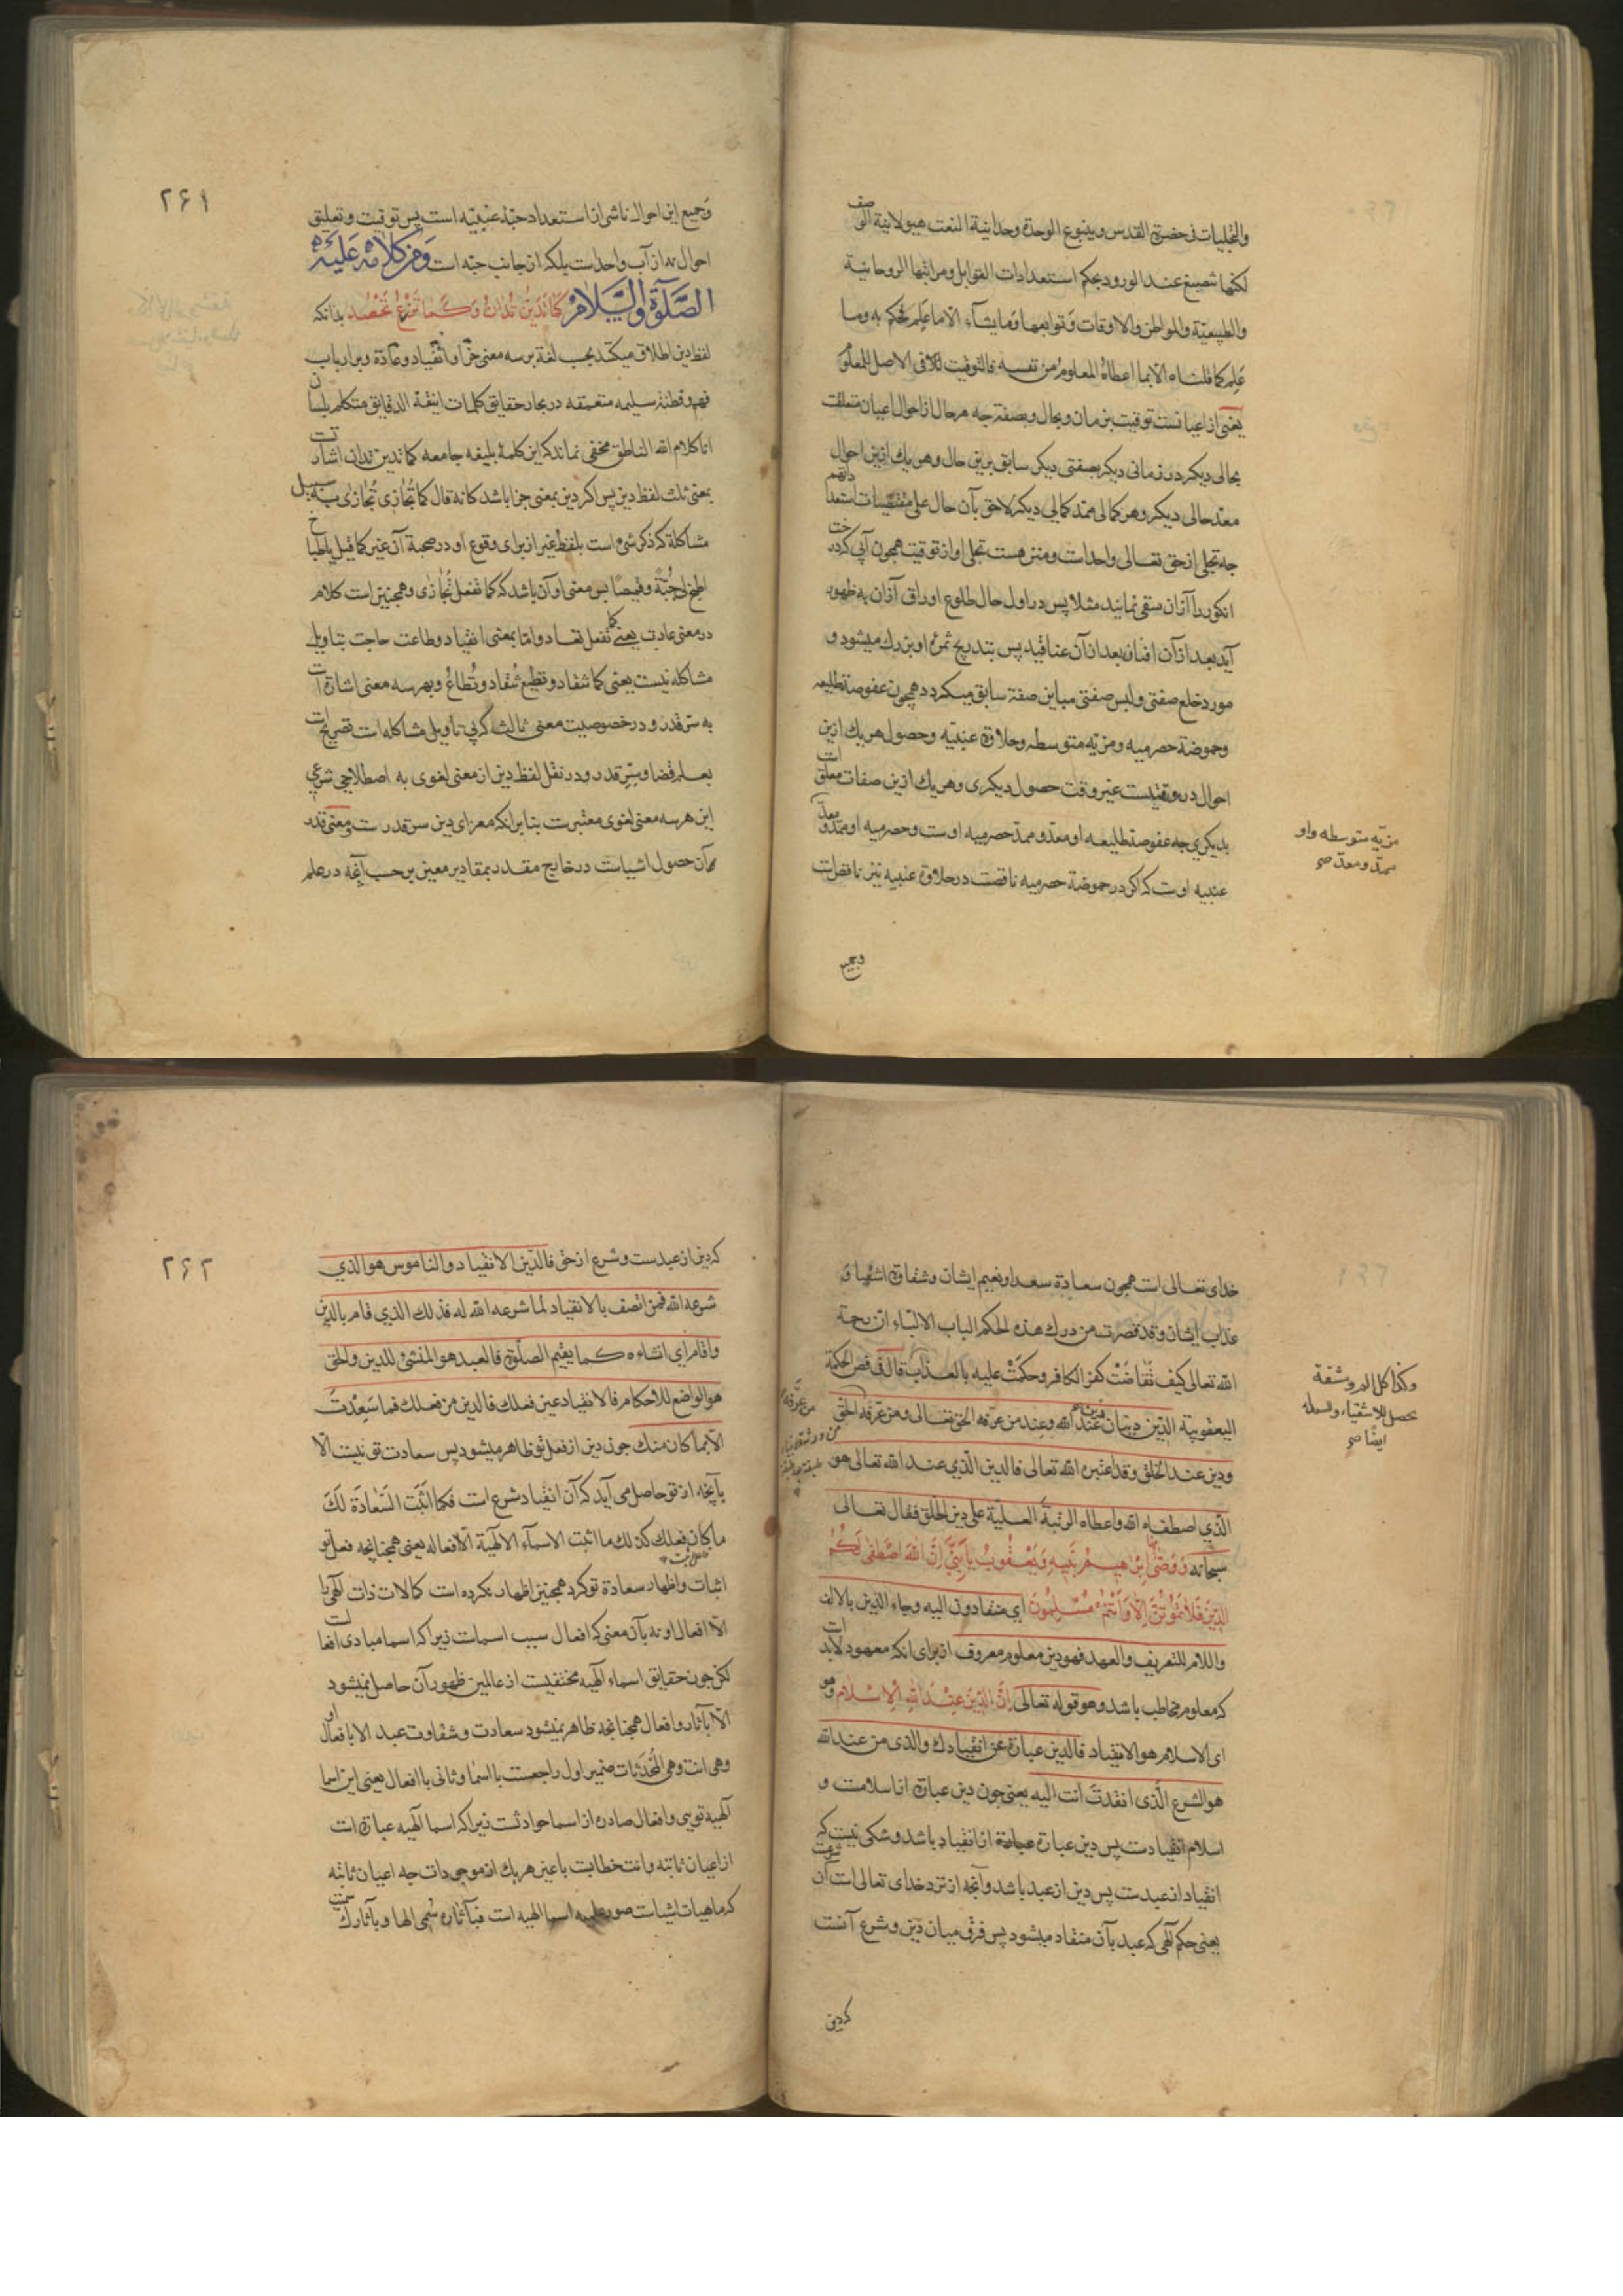 والتجلیات فی حضرة القدس وینبوع الوحدة وحدانیة النعت هیولانیة الوصف
لکنها تنصبغ عند الورود بحکم استعدادات القوابل ومراتبها الروحانیة
والطبیعیة والمواطن والاوقات وتوابعها وما یشآء الا ما علم فحکم به وما
علم کما قلناه الا بما اعطاه المعلوم من نفسه فالتوقیت فی الاصل للمعلوم
یعنی از اعیانست توقیت بزمان وبحال وبصفة چه هر حال از احوال اعیان متعلقست
بحالی دیگر در زمانی دیگر بصفتی دیگر سابق برین حال وهر یک ازین احوال
معد حالی دیگر وهر کمالی ممد کمالی دیگر لاحق بآن حال علی مقتضیات استعداداتهم
چه تجلی از حق تعالی واحد است ومنزهست تجلی او از توقیت همچون آبی که درخت
انکور را از آن سقی نمایند مثلا پس در اول حال طلوع اوراق از آن به ظهور
آید بعد از آن افنان بعد از آن عناقید پس بتدریج ثمره او بزرک میشود و
مورد خلع صفتی ولبس صفتی مباین صفة سابق میکردد همچون عفوصة طلیعه
وحموضة حصرمیه ومزیه متوسطه وحلاوة عنبیه وحصول هر یک ازین
احوال در وقتیست غیر وقت حصول دیکری وهر یک ازین صفات معلق است
بدیکری چه عفوصة طلیعه او معد وممد حصرمیه اوست وحصرمیه او ممد ومعد
عنبیه اوست که اکر در حموضة حصرمیه ناقصست در حلاوة عنبیه نیز ناقص است
مزیه متوسطه واو
ممد ومعد صح
وجمیع
۲۶۱
وجمیع این احوال ناشی از استعداد حبه عنبیه است پس توقیت وتعلیق
احوال نه از آب واحد است بلکه از جانب حبه است ومن کلامه علیه
الصلوة والسلام کما تدین تدان وکما تزرع تحصد بدانکه
لفظ دین اطلاق میکنند بحسب لغة بر سه معنی جزا وانقیاد وعادة وبر ارباب
فهم وفطنه سلیمه متعمقه در بحار حقایق کلمات انیقة الدقایق متکلم بلسان
انا کلام الله الناطق مخفی نماند که این کلمه بلیغه جامعه کما تدین تدان اشارتست
بمعنی ثلث لفظ دین پس اکر دین بمعنی جزا باشد کانه قال کما تجازی تجازی به سبیل
مشاکلة که ذکر شیء است بلفظ غیر از برای وقوع او در صحبة آن غیر کما قیل اطبخوا
لی جبة وقمیصا پس معنی او آن باشد که کما تفعل تجازی وهمچنین است کلام
در معنی عادت یعنی کما تفعل تعاد واما بمعنی انقیاد وطاعت حاجت بتاویل
مشاکله نیست یعنی کما تنقاد وتطیع تنقاد وتطاع وبهر سه معنی اشارة است
به سر قدر ودر خصوصیت معنی ثالث که بی تأویل مشاکله است تصریح است
بعلم قضا وسر قدر ودر نقل لفظ دین از معنی لغوی به اصطلاحی شرعی
این هر سه معنی لغوی معتبرست بنا بر آنکه مغزای دین سر قدر ست ومعنی قدر
آن حصول اشیاست در خارج مقدر بمقادیر معین بر حسب آنچه در علم
خدای تعالی است همچون سعادة سعدا ونعیم ایشان وشقاوة اشقیا و
عذاب ایشان وقد قصرت من درک هذه الحکم الباب الالباء ان رحمة
الله تعالی کیف تقاضت کفر الکافر وحکمت علیه بالعذاب قال فی فص الحکمة
الیعقوبیة الدین دینان دین عند الله وعند من عرفه الحق تعالی ومن عرفه من عرفه الحق
ودین عند الخلق وقد اعتبره الله تعالی فالدین الذی عند الله تعالی هو
الذی اصطفاه الله واعطاه الرتبة العلیة علی دین الخلق فقال تعالی
سبحانه ووصی بها ابرهیم بنیه ویعقوب یا بنی ان الله اصطفی لکم
الدین فلا تموتن الا وانتم مسلمون ای منقادون الیه وجاء الدین بالالف
واللام للتعریف والعهد فهو دین معلوم معروف از برای انکه معهود لابد است
که معلوم مخاطب باشد وهو قوله تعالی ان الدین عند الله الاسلام وهو
ای الاسلام هو الانقیاد فالدین عبارة عن انقیادک والذی من عند الله
هو الشرع الذی انقدت انت الیه یعنی چون دین عبارة از اسلامست و
اسلام انقیادست پس دین عبارة از انقیاد باشد وشکی نیست که
انقیاد از عبدست پس دین از عبد باشد وآنچه از نزد خدای تعالی است آن شرعست
یعنی حکم آلهی که عبد بآن منقاد میشود پس فرق میان دین وشرع آنست
وکذا کل الم ومشقة
یحصل للاشقیاء والسعداء
ایضا صح
که دین
۲۶۲
که دین از عبدست وشرع از حق فالدین الانقیاد والناموس هو الذی
شرعه الله فمن اتصف بالانقیاد لما شرعه الله له فذلک الذی قام بالدین
واقام ای انشاءه کما یقیم الصلوة فالعبد هو المنشئ للدین والحق
هو الواضع للاحکام فالانقیاد عین فعلک فالدین من فعلک فما سعدت
الا بما کان منک چون دین از فعل تو ظاهر میشود پس سعادت تو نیست الا
بآنچه از تو حاصل می آید که آن انقیاد شرع است فکما اثبت السعادة لک
ما کان فعلک کذلک ما اثبت الاسمآء الالهیة الا افعاله یعنی همچنانچه فعل تو
اثبات واظهار سعادة تو کرد همچنین اظهار نکرده است کمالات ذات آلهی را
الا افعال او نه بآن معنی که افعال سبب اسماست زیرا که اسما مبادی افعالست
لکن چون حقایق اسماء آلهیه مختفیست از عالمین ظهور آن حاصل نمیشود
الا بآثار وافعال همچنانچه ظاهر نمیشود سعادت وشقاوت عبد الا بافعال او
وهی انت وهی المحدثات ضمیر اول راجعست با اسما وثانی با افعال یعنی این اسما
آلهیه تویی وافعال صادره از اسما حوادثست زیرا که اسما آلهیه عبارة است
از اعیان ثابته وانت خطابست با عین هر یک از موجودات چه اعیان ثابته
که ماهیات اشیاست صور علمیه اسما الهیه است فبآثاره سمی الها وبآثارک سمیت